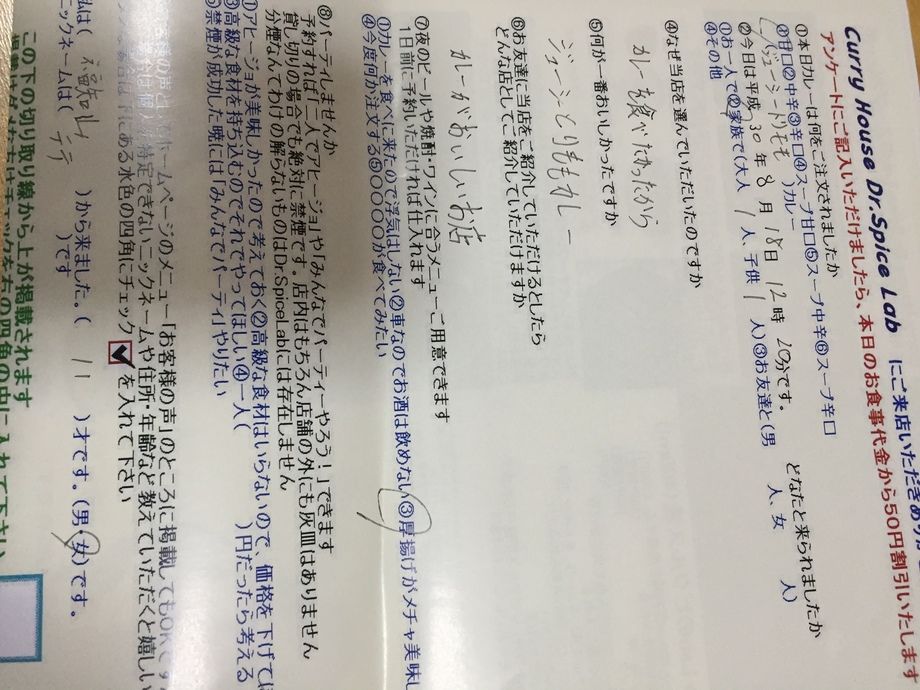 Curry House Dr.Spice Lab にご来店いただきあり
アンケートにご記入いただけましたら、本日のお食事代金から50円割引いたします
①本日カレーは何をご注文されましたか
①甘口②中辛③辛口④スープ甘口⑤スープ中辛⑥スープ辛口
(ジューシーとりもも )カレー
②今日は平成 30 年 8 月 18 日 12 時 20分です。 どなたと来られましたか
①お一人で②家族で(大人 1 人、子供 1 人)③お友達と(男 人、女 人)
④その他
④なぜ当店を選んでいただいたのですか
カレーを食べたかったから
⑤何が一番おいしかったですか
ジューシーとりももカレー
⑥お友達に当店をご紹介していただけるとしたら
どんな店としてご紹介していただけますか
カレーがおいしいお店
⑦夜のビールや焼酎・ワインに合うメニューご用意できます
1日前に予約いただければ仕入れます
①カレーを食べに来たので浮気はしない②車なのでお酒は飲めない③厚揚げがメチャ美味し
④今度何か注文する⑤○○○○が食べてみたい
⑧パーティしませんか
予約すれば「二人でアヒージョ」や「みんなでパーティーやろう!」できます
貸し切りの場合でも絶対に禁煙です。店内はもちろん店舗の外にも灰皿はありません
分煙なんてわけの解らないものはDr.SpiceLabには存在しません
①アヒージョが美味しかったので考えておく②高級な食材はいらないので、価格を下げてほ
③高級な食材を持ち込むのでそれでやってほしい④一人( )円だったら考える
⑤禁煙が成功した暁には「みんなでパーティ」やりたい
ホームページのメニュー「お客様の声」のところに掲載してもOKです
特定できないニックネームや住所・年齢など教えていただくと嬉しい
にある水色の四角にチェック✓を入れて下さい
私は( 不敏知れ )から来ました。( 11 )才です。(男・女)です。
ニックネームは( テテ )です
この下の切り取り線から上が掲載されます